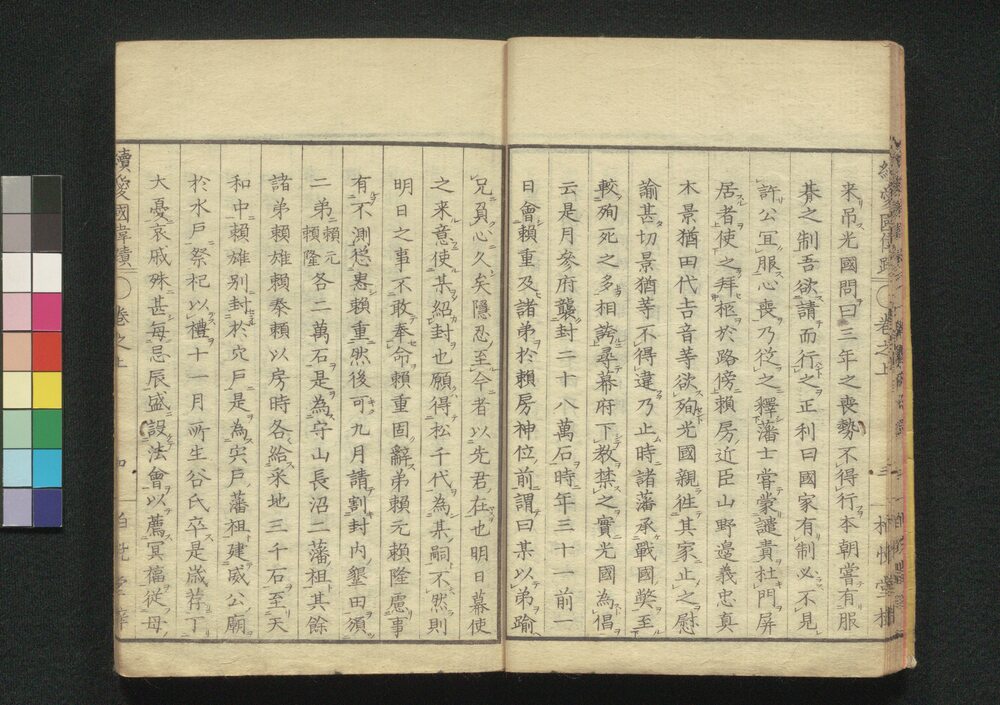 来吊光國問曰三年之喪勢不得行本朝嘗有服
朞之制吾欲請而行之正利曰國家有制必不見
許公冝服心喪乃從之釋藩士嘗蒙譴責杜門屏
居者使之拜柩於路傍賴房近臣山野邉義忠真
木景猶田代吉音等欲殉光國親徃其家止之慰
諭甚切景猶等不得違乃止時諸藩承戰國獘至
較殉死之多相誇尋幕府下教禁之實光國為倡
云是月參府襲封二十八萬石時年三十一前一
日會賴重及諸弟於賴房神位前謂曰某以弟踰
兄負心久矣隱忍至今者以先君在也明日幕使
之来意使某紹封也願得松千代為某嗣不然則
明日之事不敢奉命賴重固辭弟賴元賴隆慮事
有不測慫恿賴重然後可九月請割封内墾田須
二弟賴元賴隆各二萬石是為守山長沼二藩祖其餘
諸弟賴雄賴泰賴以房時各給采地三千石至天
和中賴雄別封於宍戸是為宍戸藩祖建威公廟
於水戸祭祀以禮十一月所生谷氏卒是歳荐丁
大憂哀戚殊甚每忌辰盛設法會以薦冥福從母
續愛國偉績
卷之上